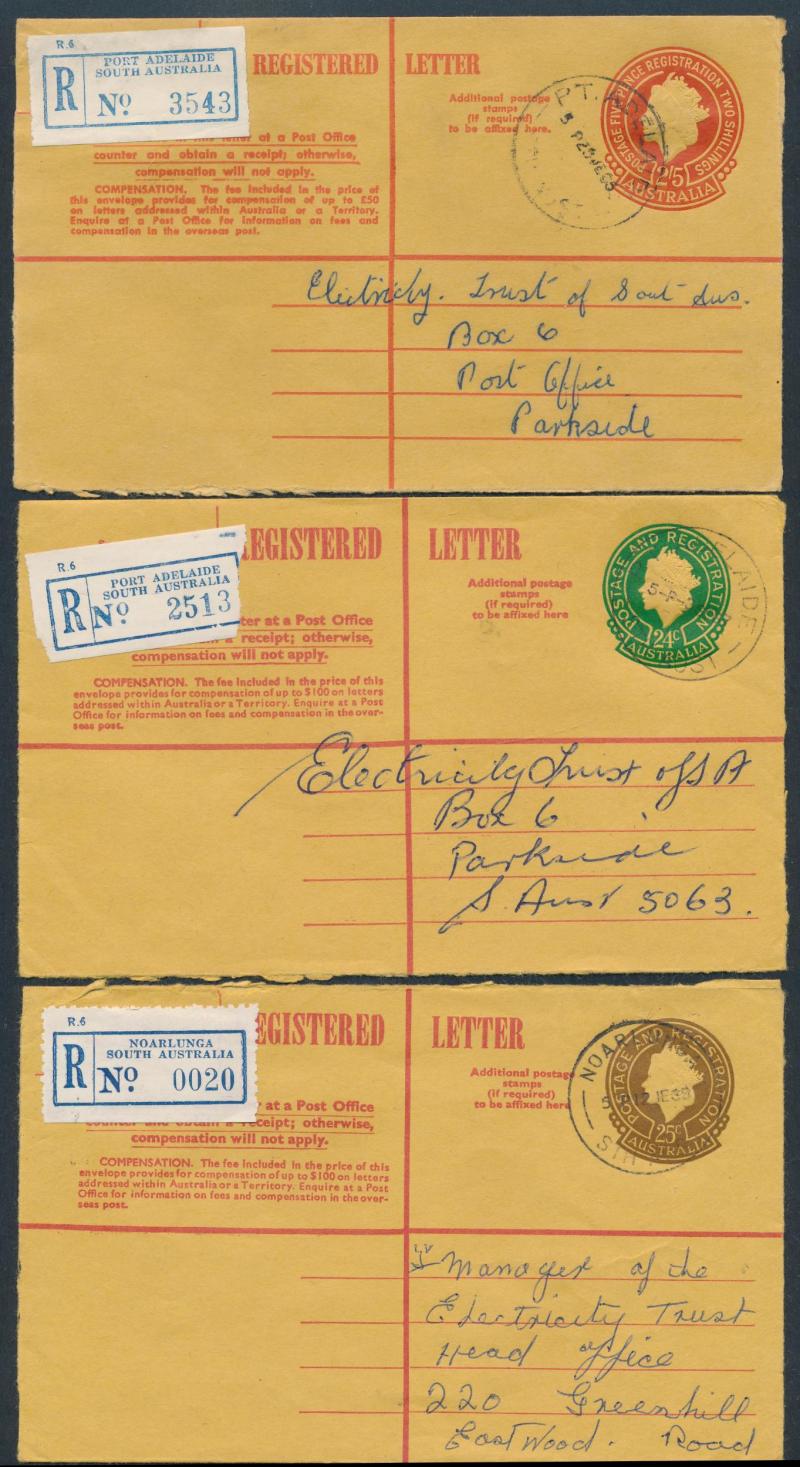 R.6
PORT ADELAIDE
SOUTH AUSTRALIA
R No 3543
REGISTERED LETTER
Additional postage
stamps
(if required)
to be affixed here.
POSTAGE FIVEPENCE REGISTRATION TWO SHILLINGS
2/5
AUSTRALIA
PT. ADELAI
5 P 29 JE 65
this letter at a Post Office
counter and obtain a receipt; otherwise,
compensation will not apply.
COMPENSATION. The fee included in the price of
this envelope provides for compensation of up to £50
on letters addressed within Australia or a Territory.
Enquire at a Post Office for information on fees and
compensation in the overseas post.
Electricity. Trust of Sout Aus.
Box 6
Post Office
Parkside
R.6
PORT ADELAIDE
SOUTH AUSTRALIA
R No 2513
EGISTERED LETTER
Additional postage
stamps
(if required)
to be affixed here
POSTAGE AND REGISTRATION
24c
AUSTRALIA
ELAIDE
5-P-
UST
er at a Post Office
a receipt; otherwise,
compensation will not apply.
COMPENSATION. The fee included in the price of this
envelope provides for compensation of up to $100 on letters
addressed within Australia or a Territory. Enquire at a Post
Office for information on fees and compensation in the over-
seas post.
Electricity Trust of S A
Box 6
Parkside
S. Aust 5063.
R.6
NOARLUNGA
SOUTH AUSTRALIA
R No 0020
EGISTERED LETTER
Additional postage
stamps
(if required)
to be affixed here
POSTAGE AND REGISTRATION
25c
AUSTRALIA
NOARLUNGA
5 P 17 JE 69
STH
er at a Post Office
counter and obtain a receipt; otherwise,
compensation will not apply.
COMPENSATION. The fee included in the price of this
envelope provides for compensation of up to $100 on letters
addressed within Australia or a Territory. Enquire at a Post
Office for information on fees and compensation in the over-
seas post.
Manager of the
Electricity Trust
Head Office
220 Greenhill
Eastwood. Road